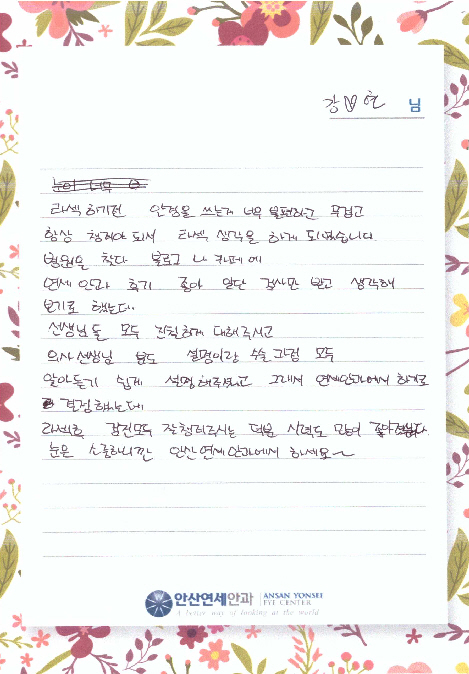 강♡현 님
라섹하기전 안경을 쓰는게 너무 불편하고 무겁고
항상 챙겨야 되서 라섹 생각을 하게 되었습니다
병원을 찾다 블로그나 카페에
연세안과 후기 좋아 일단 검사만 받고 생각해
보기로 했는데
선생님들 모두 친절하게 대해주시고
의사선생님 분도 설명이랑 수술 과정 모두
알아듣기 쉽게 설명해주셨고 그래서 연세안과에서 하기로
결정했는데
라섹후 검진모두 잘 챙겨주시는 덕분 시력도 많이 좋아졌습니다
눈은 소중하니깐 안산연세안과에서 하세요~
안산연세안과 ANSAN YONSEI EYE CENTER
A better way of looking at the world